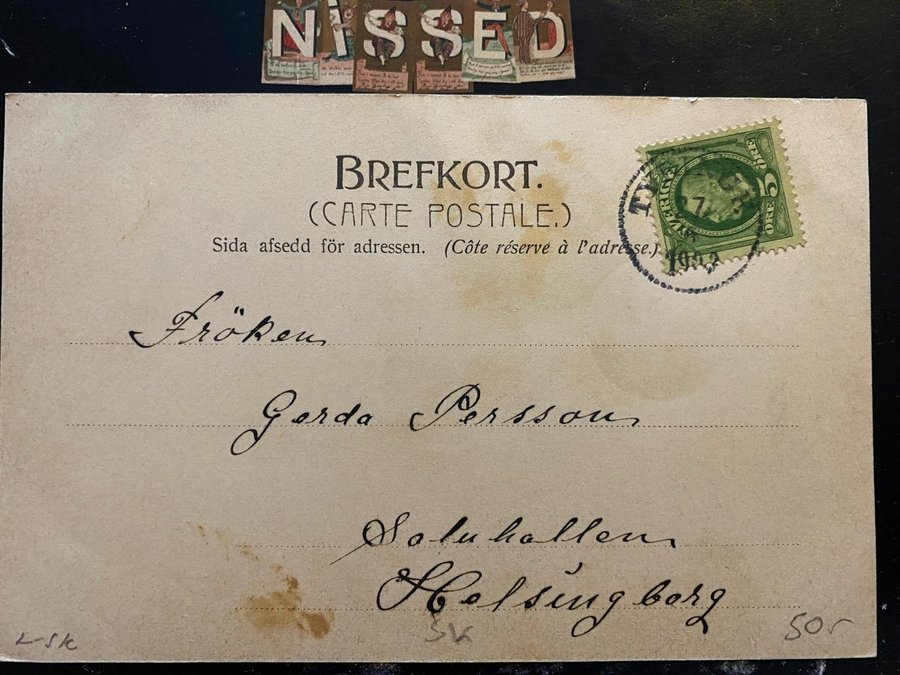 NISSED
BREFKORT.
(CARTE POSTALE.)
Sida afsedd för adressen. (Côte réserve à l'adresse.)
SVERIGE
5
ÖRE
Fröken
Gerda Persson
Saluhallen
Helsingborg
L-SK
SK
50:-